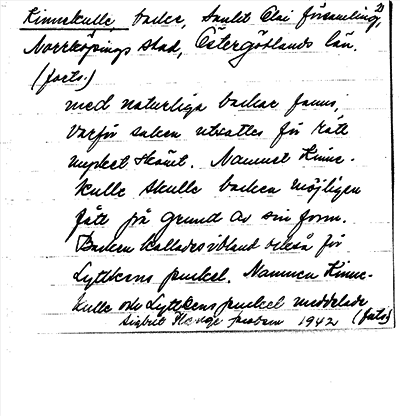 Kinnekulle, backe, Sankt Olai församling, 2)
Norrköpings stad, Östergötlands län.
(forts.)
med naturliga backar fanns,
varför saken utsattes för rätt
mycket skämt. Namnet Kinne-
kulle skulle backen möjligen
fått på grund av sin form.
Backen kallades ibland också för
Lyttkens puckel. Namnen Kinne-
kulle och Lyttkens puckel meddelade
Sigbrit 1942 (forts.)